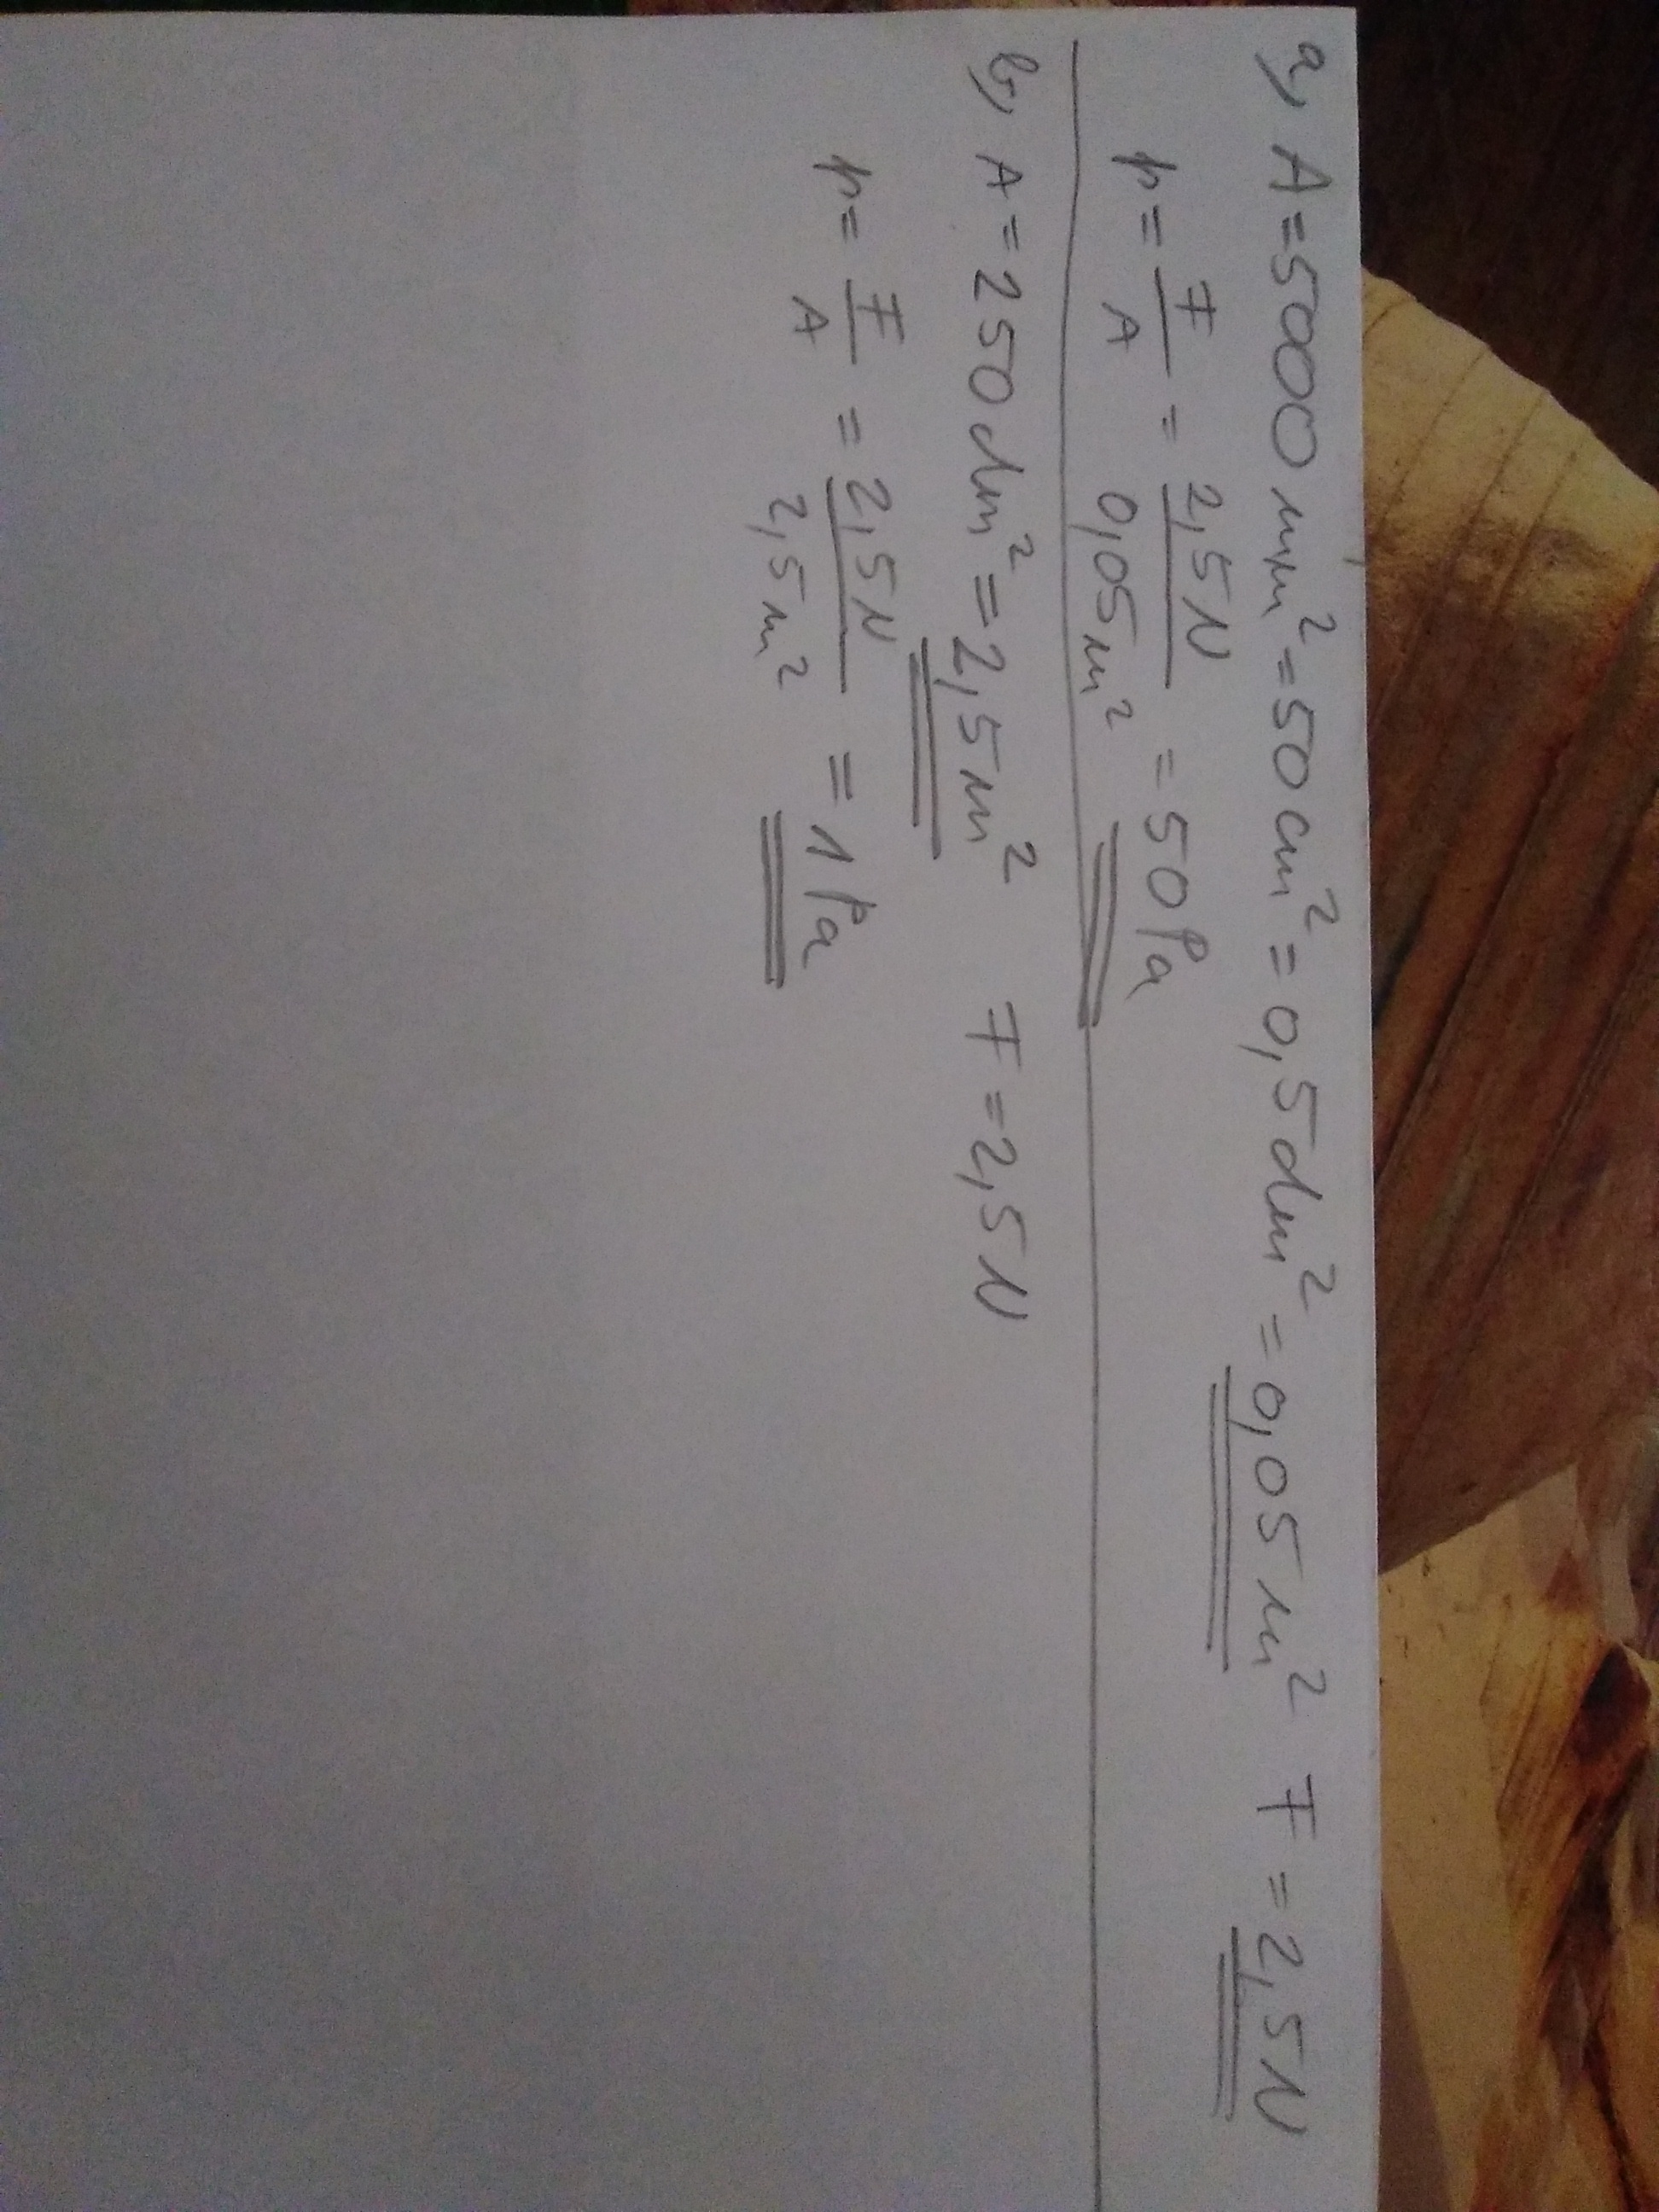 a, A=5000 mm²=50cm²=0,5dm²=0,05m² F=2,5N
p= F/A = 2,5N/0,05m² =50Pa
b, A=250dm²=2,5m² F=2,5N
p= F/A = 2,5N/2,5m² =1Pa